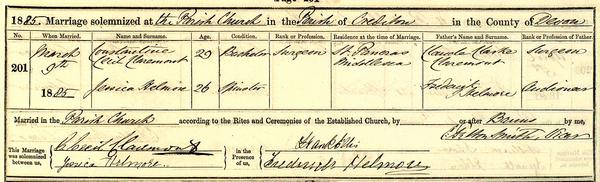 1885. Marriage solemnized at the Parish Church in the Parish of Crediton in the County of Devon
No. When Married. Name and Surname. Age. Condition. Rank or Profession. Residence at the time of Marriage. Father's Name and Surname. Rank or Profession of Father.
201 March 9th 1885
Constantine Cecil Claremont 29 Bachelor Surgeon St. Pancras Middlesex Claude Clarke Claremont Surgeon
Jessica Helmore 26 Spinster Frederick Helmore Auctioneer
Married in the Parish Church according to the Rites and Ceremonies of the Established Church, by or after Banns by me,
Smith Vicar
This Marriage was solemnized between us,
C Cecil Claremont
Jessica Helmore
in the Presence of us,
Frederick Helmore